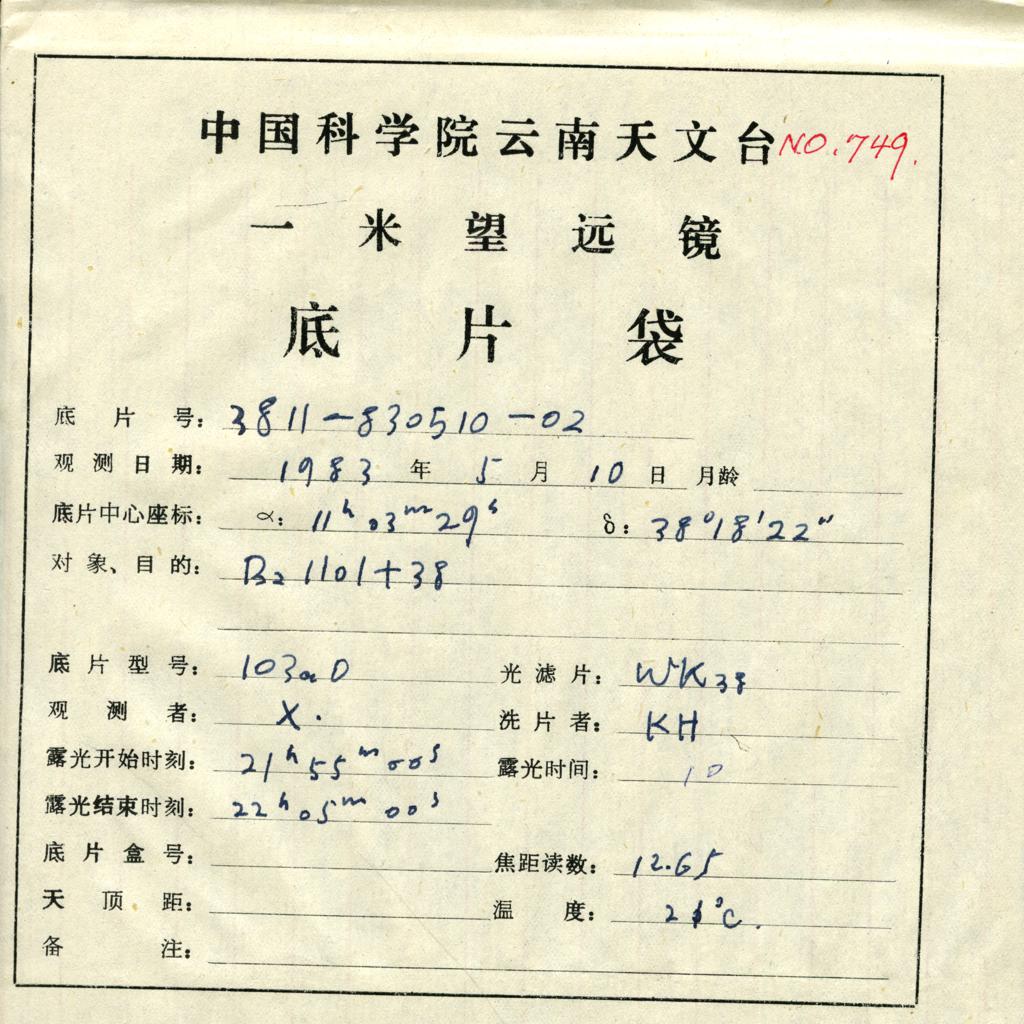 中国科学院云南天文台 NO.749.
一米望远镜
底片袋
底片号: 3811-830510-02
观测日期: 1983年5月10日 月龄
底片中心座标: α: 11h 03m 29s δ: 38°18′22″
对象、目的: B2 1101+38
底片型号: 103aD 光滤片: WK38
观测者: X. 洗片者: KH
露光开始时刻: 21h 55m 00s 露光时间: 10
露光结束时刻: 22h 05m 00s
底片盒号: 焦距读数: 12.65
天顶距: 温度: °C.
备注: